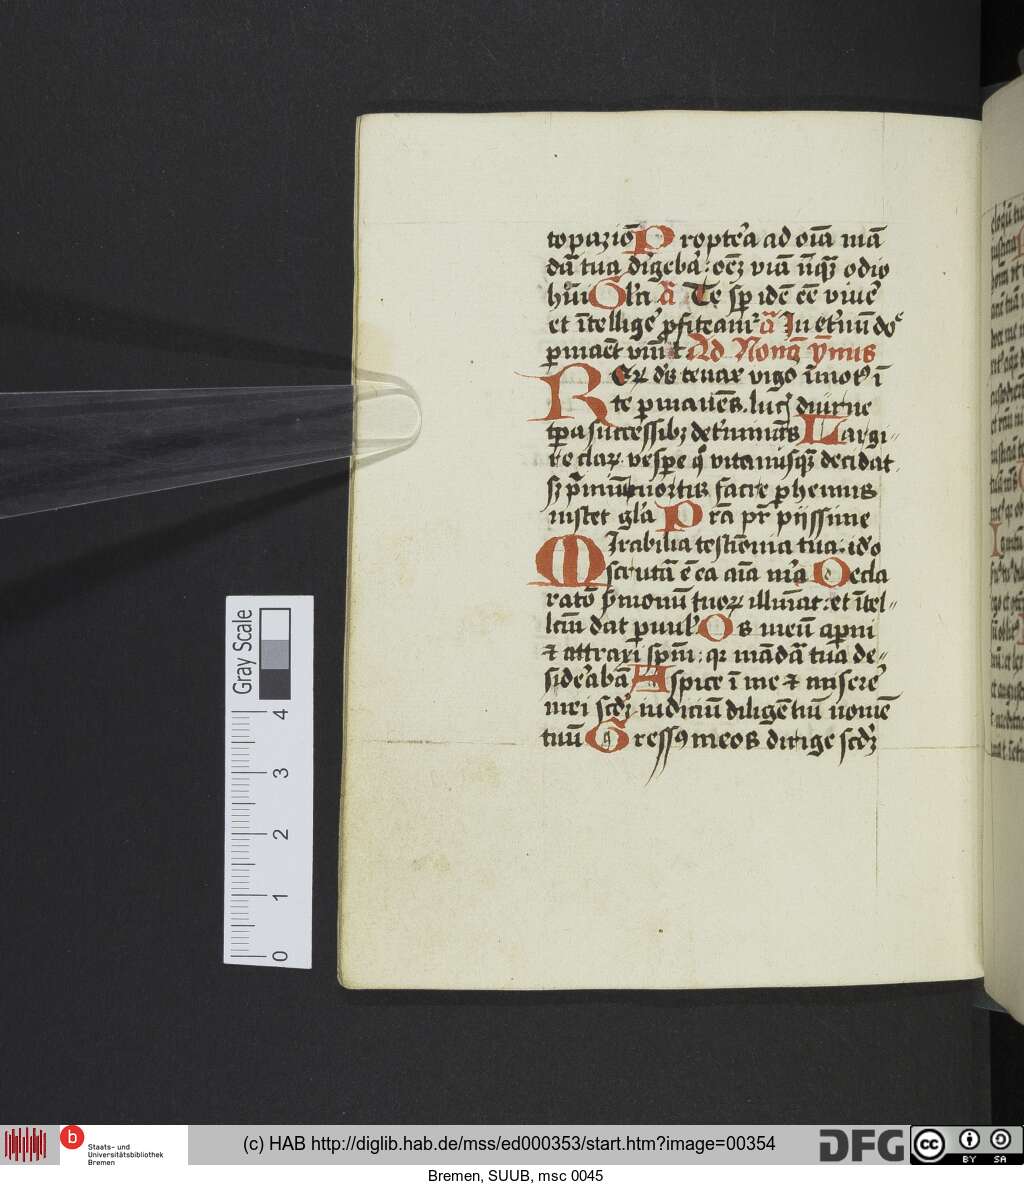 topaziō Propt'ea ad oīa mā
dā tua dirigebā: oēȝ viā inīqȝ odio
hūi Gl'ri ā Te sp idē eē viue'
et ītellige' pfiteam' ā In et'nū dōe
pmaēt vīu t. Ad Nonā ymus
Rerꝝ ds tenax vigo īmot9 ī
te pmanēs. lucꝭ diurne
tpa successibȝ det'minās Largi-
re clarꝝ vespe q vita nusqȝ decidat
sȝ pmiū mortis sacre phennis
instet gl'a Prā pr pijssime
Mirabilia testiōnia tua: idō
scrutā ē ea aīa mā Decla
ratō smonū tuoꝝ illūiat: et ītel-
lcūi dat puul' Os meū apui
⁊ attraxi spm: qꝛ mādā tua de-
sideabā Aspice ī me ⁊ misere'
mei scdꝫ iudiciū diligētiū nomē
tuū Gress9 meos dirige scdꝫ
Gray Scale
4
3
2
1
0
b Staats- und
Universitätsbibliothek
Bremen
(c) HAB http://diglib.hab.de/mss/ed000353/start.htm?image=00354
DFG
cc BY SA
Bremen, SUUB, msc 0045